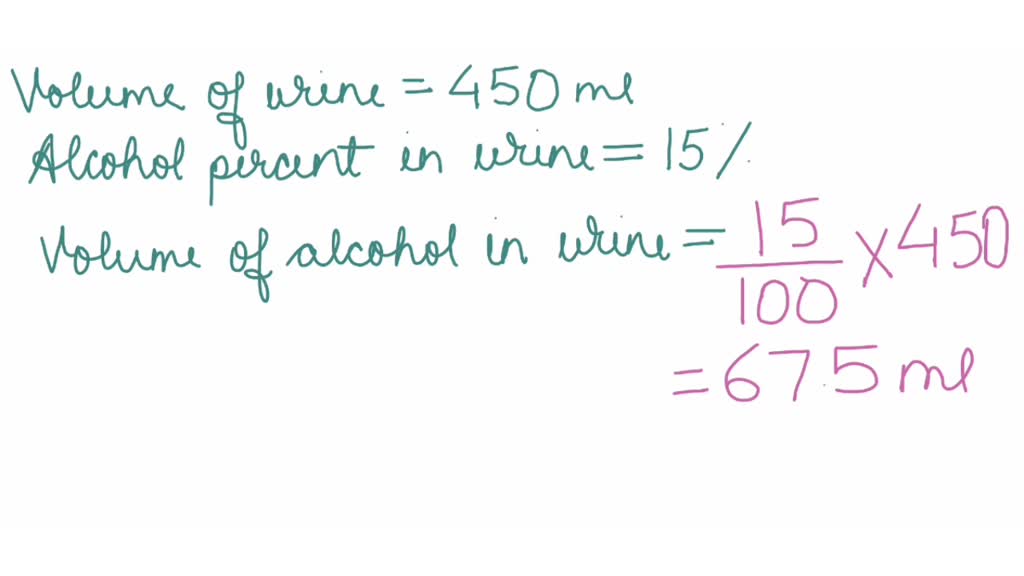 Volume of urine = 450 ml
Alcohol percent in urine = 15%
Volume of alcohol in urine = 15/100 x 450
= 67.5 ml